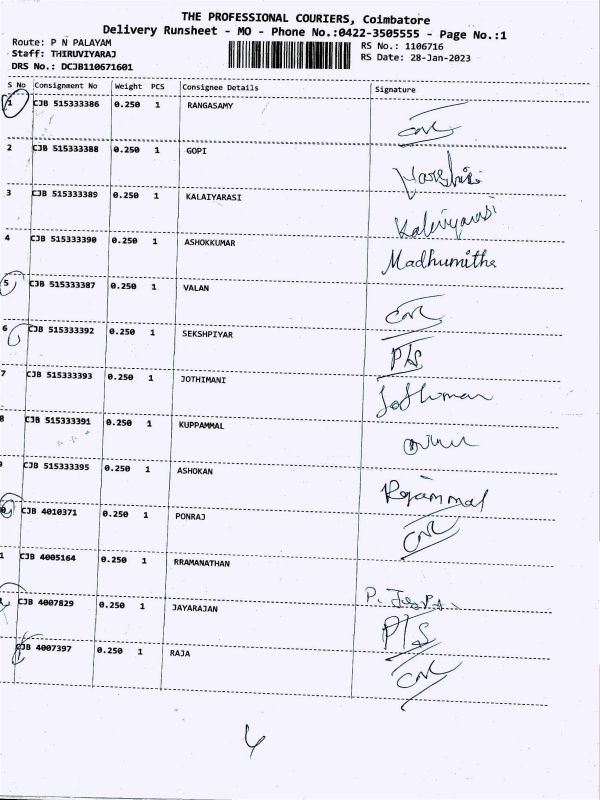 THE PROFESSIONAL COURIERS, Coimbatore
Delivery Runsheet - MO - Phone No.:0422-3505555 - Page No.:1
Route: P N PALAYAM
Staff: THIRUVIYARAJ
DRS No.: DCJB110671601
RS No.: 1106716
RS Date: 28-Jan-2023
S No Consignment No Weight PCS Consignee Details Signature
1 CJB 515333386 0.250 1 RANGASAMY
2 CJB 515333388 0.250 1 GOPI
3 CJB 515333389 0.250 1 KALAIYARASI Kalaiyarasi
4 CJB 515333390 0.250 1 ASHOKKUMAR Madhumitha
5 CJB 515333387 0.250 1 VALAN
6 CJB 515333392 0.250 1 SEKSHPIYAR P/S
7 CJB 515333393 0.250 1 JOTHIMANI
8 CJB 515333391 0.250 1 KUPPAMMAL
CJB 515333395 0.250 1 ASHOKAN Rajammal
0 CJB 4010371 0.250 1 PONRAJ
1 CJB 4005164 0.250 1 RRAMANATHAN
CJB 4007829 0.250 1 JAYARAJAN P/S
CJB 4007397 0.250 1 RAJA